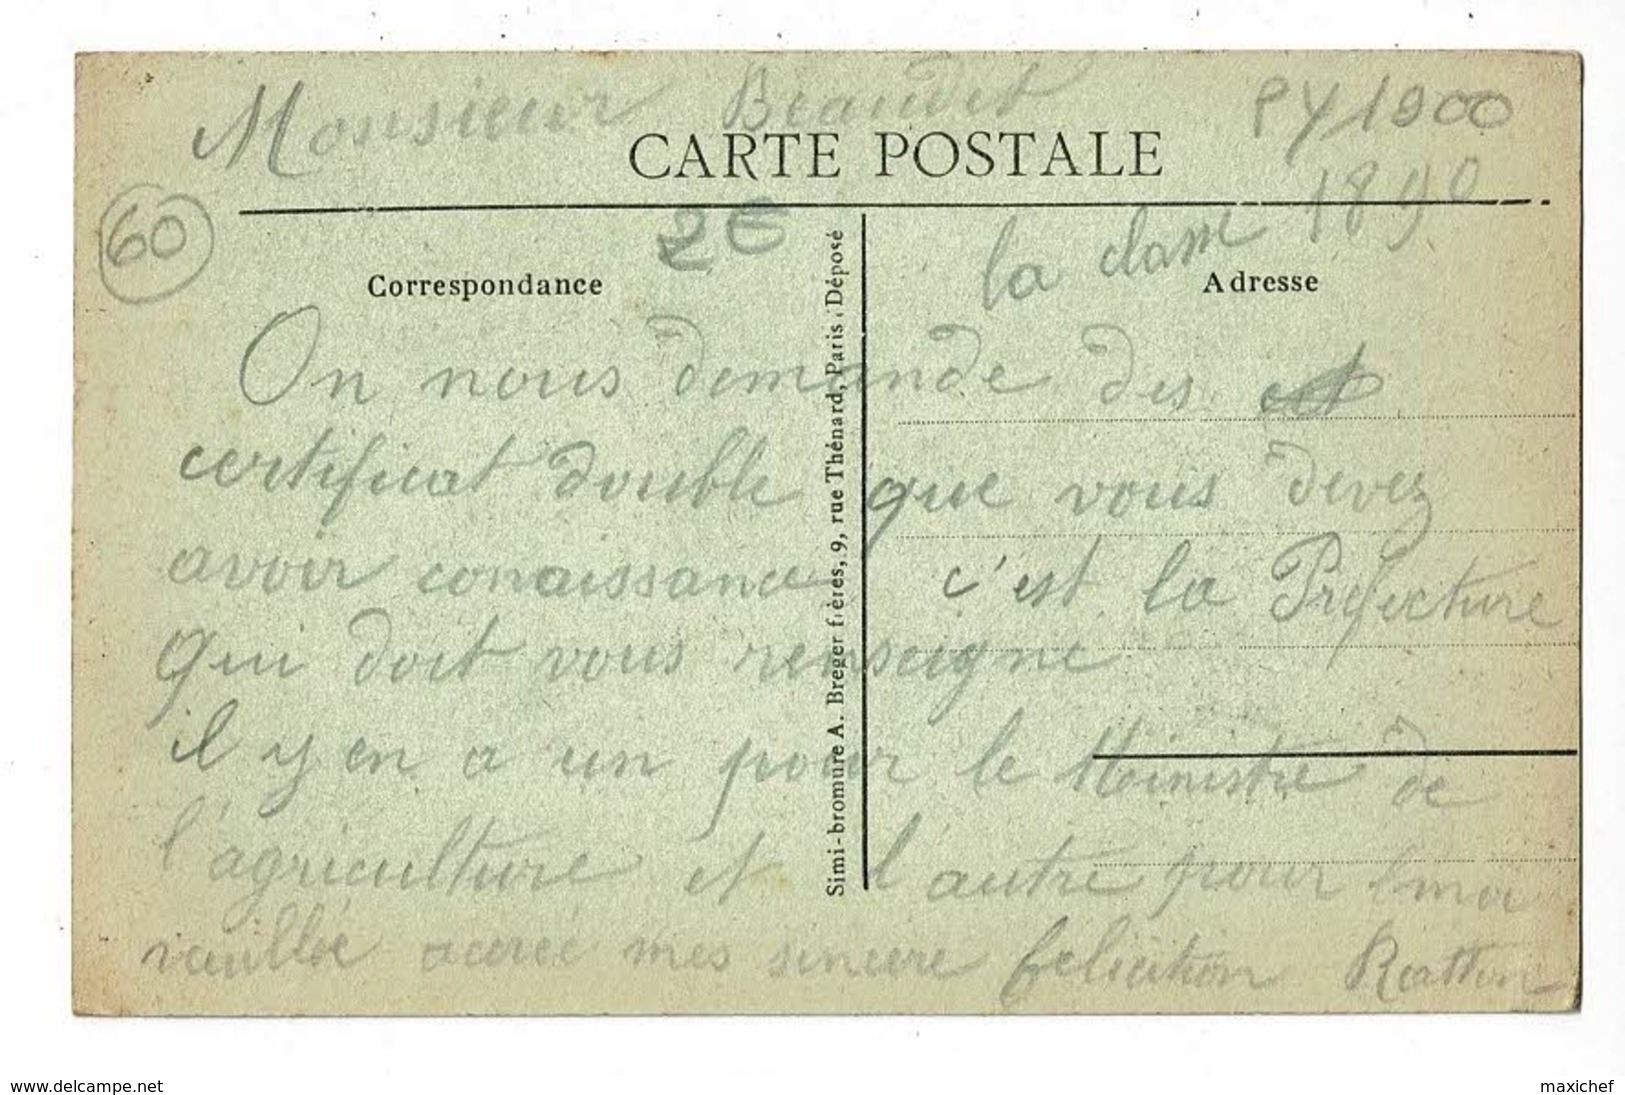 Monsieur Beaudet
PY1900
CARTE POSTALE
1890
60
2€
la classe
Correspondance
Adresse
On nous demande des
certificat double que vous devez
avoir conaissance c'est la Préfecture
qui doit vous renseigne
il y en a un pour le Ministre de
l'agriculture et l'autre pour
veuillée acereé mes sincere felicition
Simi-bromure A. Breger frères, 9, rue Thénard, Paris, Déposé
www.delcampe.net
maxichef